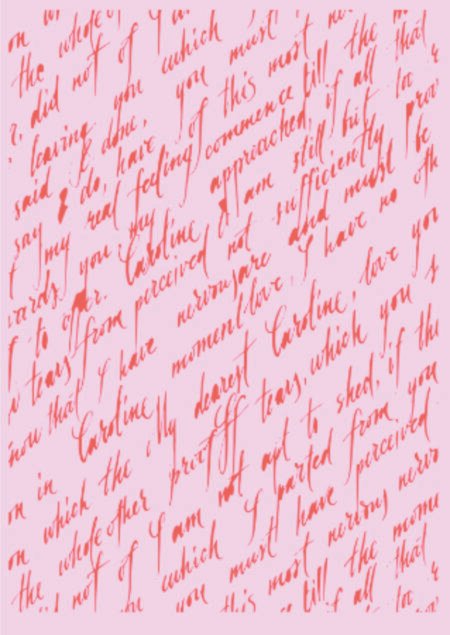 on whole of
the whole of I
r, did not of I am
leaving you which
said & done, you must the
say & do, have of this most that
f my real feeling commence till the
wards you my approached, if all that
f to offer. Caroline & am still but too
w tears from perceived not sufficiently prov
nervous are and must be
know that I have moment love, I have no oth
Caroline My dearest Caroline, love you
on in which the proof tears, which you s
on whole other not apt to shed, if the
the whole of I am I parted from you
did not of which must have perceived
you this most nervous nervo
you must till the mome
this if all that